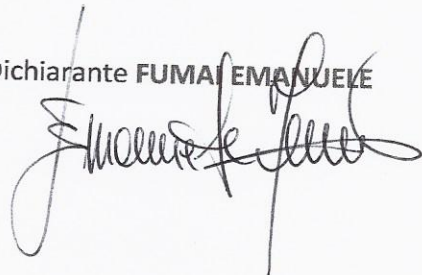 Dichiarante FUMAI EMANUELE
Emanuele Fumai